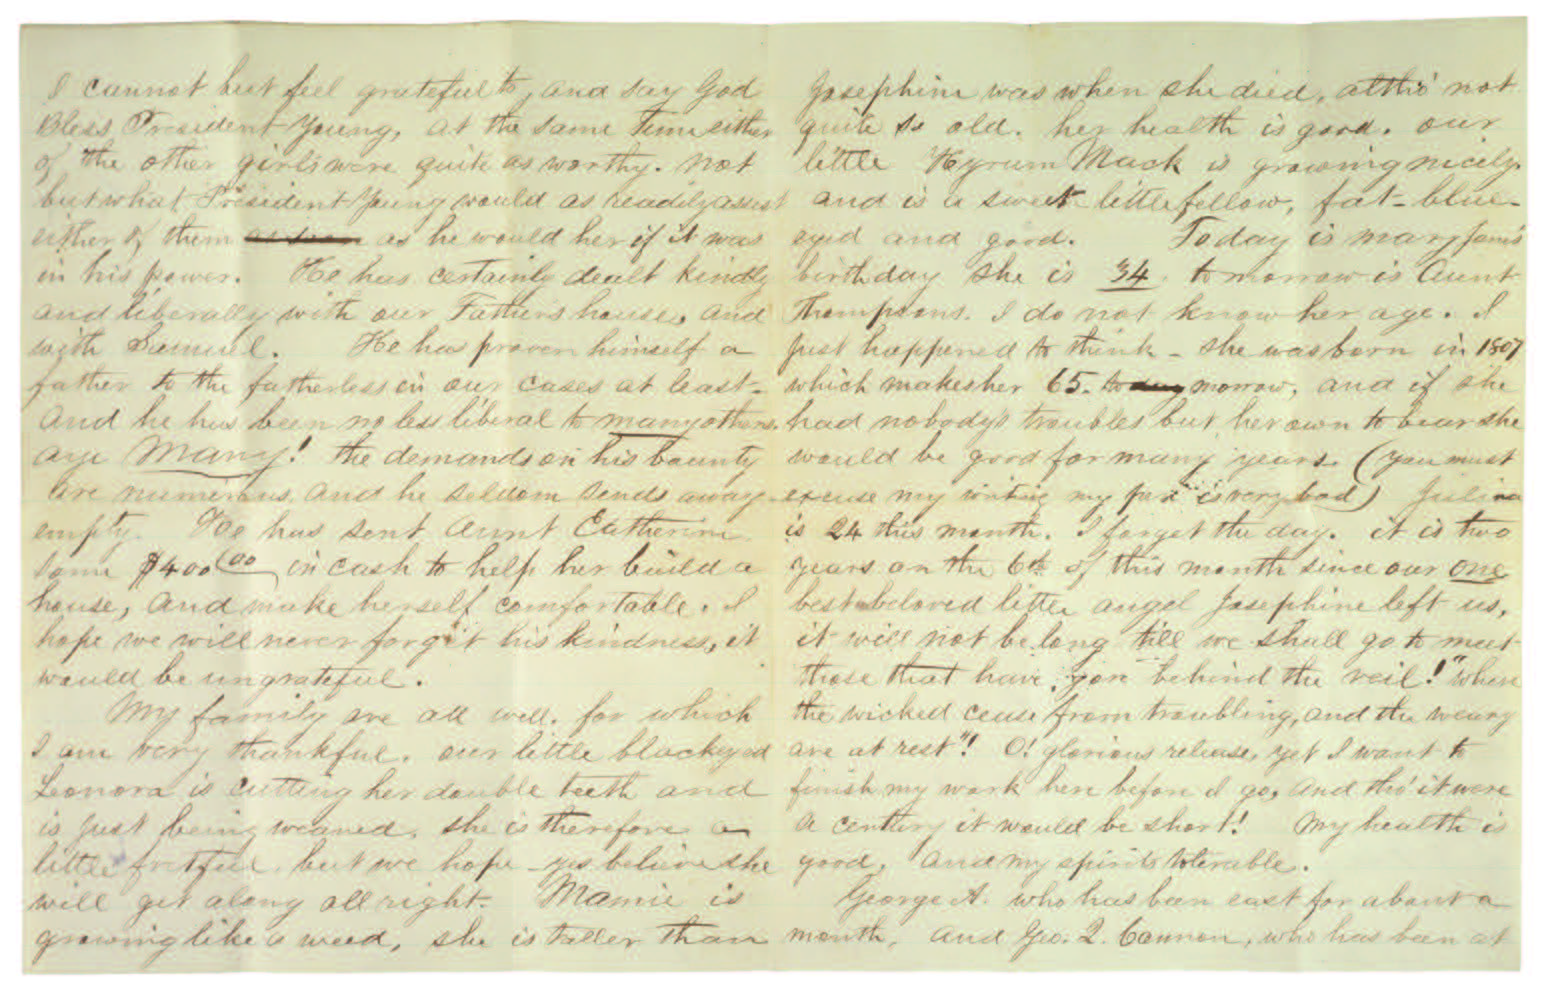 I cannot but feel grateful to, and say God
Bless President Young, at the same time either
of the other girls were quite as worthy. not
but what President Young would as readily assist
either of them as soon as he would her if it was
in his power. He has certainly dealt kindly
and liberally with our Fathers house, and
with Samuel. He has proven himself a
father to the fatherless in our cases at least-
and he has been no less liberal to many others.
aye Many! the demands on his bounty
are numerous, and he seldom sends away
empty. He has sent Aunt Catherine
some $400 00 in cash to help her build a
house, and make herself comfortable. I
hope we will never forget his kindness, it
would be ungrateful.
My family are all well. for which
I am very thankful. our little blackeyed
Leonora is cutting her double teeth and
is just being weaned, she is therefore a
little fretful, but we hope - yes believe she
will get along all right- Mamie is
growing like a weed, she is taller than
Josephine was when she died, altho' not
quite so old. her health is good. our
little Hyrum Mack is growing nicely.
and is a sweet little fellow, fat - blue-
eyed and good. Today is Mary Jane's
birthday she is 34. tomorrow is Aunt
Thompsons. I do not know her age. I
just happened to think - she was born in 1807
which makes her 65. to day morrow, and if she
had nobody's troubles but her own to bear she
would be good for many years. (you must
excuse my writing my pen is very bad) Julina
is 24 this month. I forget the day. it is two
years on the 6th of this month since our one
best beloved little angel Josephine left us,
it will not be long till we shall go to meet
those that have gon behind the veil! "when
the wicked cease from troubling, and the weary
are at rest"! O! glorious release, yet I want to
finish my work here before I go, and tho' it were
a century it would be short! My health is
good, and my spirits tolerable.
George A. who has been east for about a
month, and Geo. Q. Cannon, who has been at